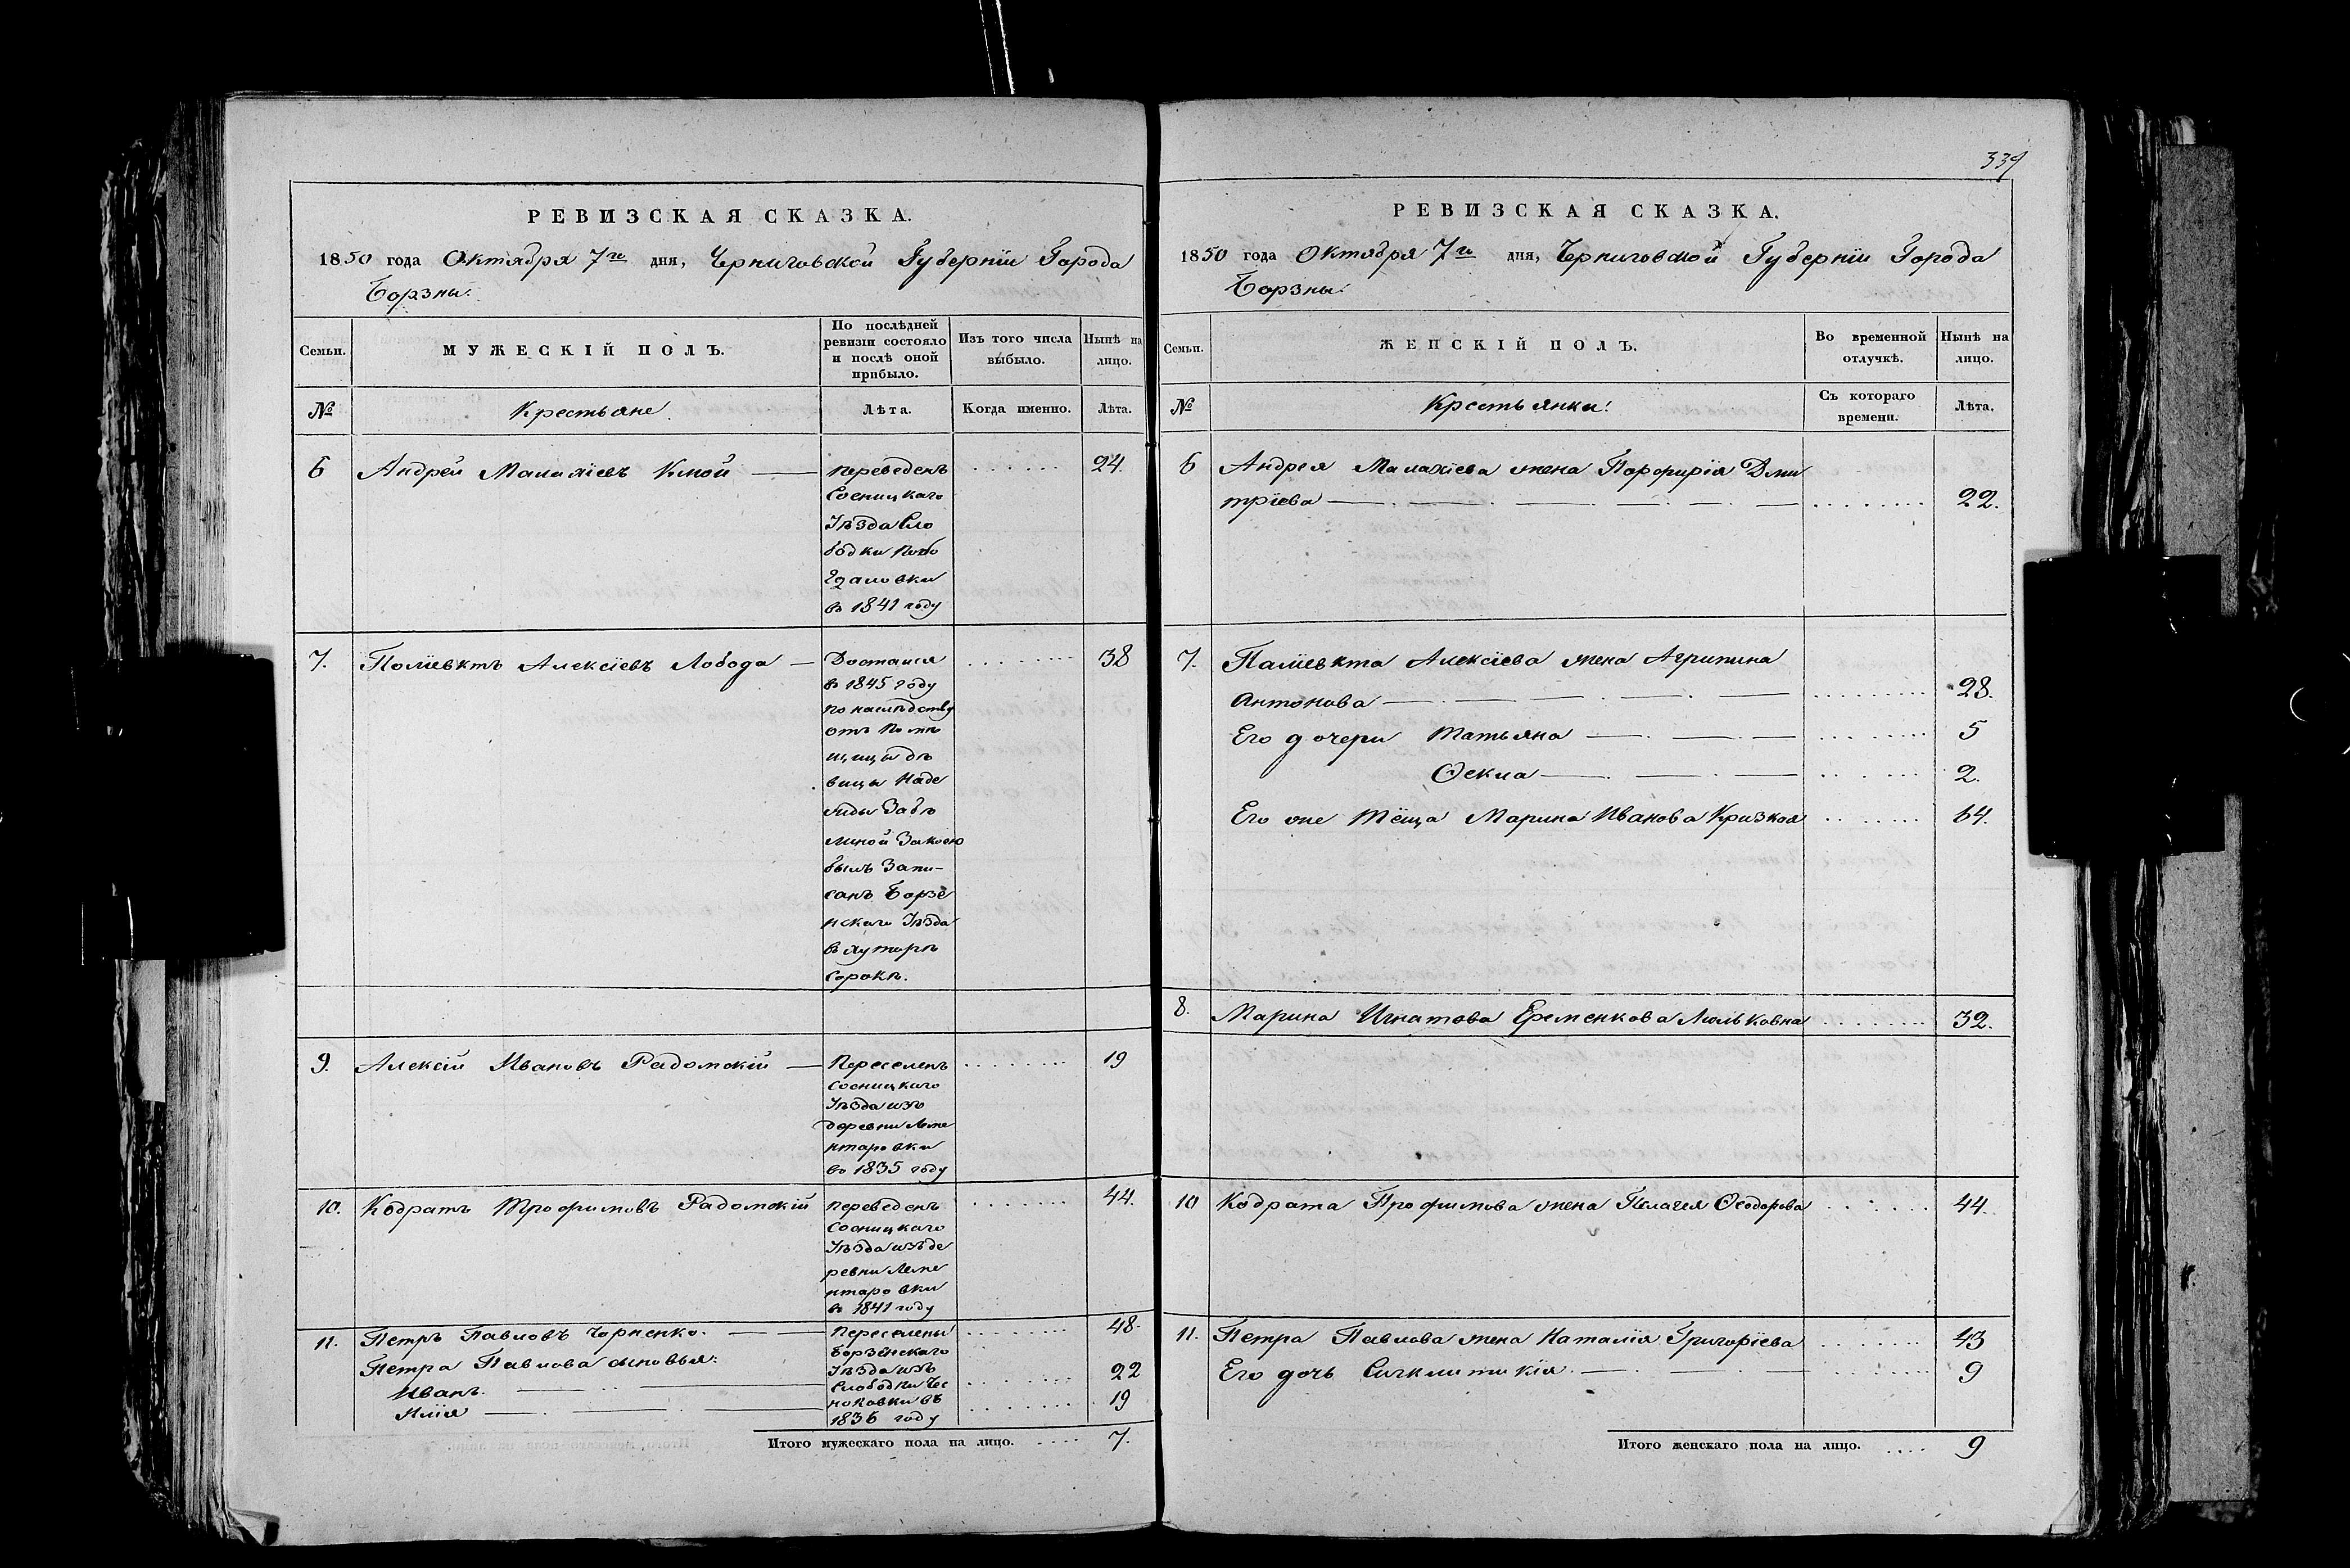 РЕВИЗСКАЯ СКАЗКА.
1850 года Октября 7го дня, Черниговской Губерніи Города
Борзны.
Семьи.
МУЖЕСКІЙ ПОЛЪ.
По послѣдней
ревизіи состояло
и послѣ оной
прибыло.
Изъ того числа
выбыло.
Нынѣ на
лицо.
№
Крестьяне
Лѣта.
Когда именно.
Лѣта.
6
Андрей Малахіевъ
переведенъ
24.
Сосницкаго
Уѣзда Сло
бодки
въ 1841 году
7.
Поліевктъ Алексіевъ Лобода
Достался
38
въ 1845 году
по наслѣдству
отъ Помѣ
щицы дѣ
вицы Наде
жды Забѣ
линой Закоею
былъ Запи-
санъ Борзе
нскаго Уѣзда
въ хуторѣ
Сорокѣ.
9.
Алексій Ивановъ Радомскій
Переселенъ
19
Сосницкаго
Уѣзда изъ
деревни Лене
нтаровки
въ 1835 году
10.
Кодратъ Трофимовъ Радомскій
переведенъ
44.
Сосницкаго
Уѣзда изъ де
ревни Лене
нтаровки
въ 1841 году
11.
Петръ Павловъ Чорненко.
Переселены
48.
Борзенскаго
Петра Павлова сыновья:
Уѣзда изъ
Иванъ
Слободки Чес
22
Илія
ноковки въ
19
1836 году
Итого мужескаго пола на лицо. 7.
339
РЕВИЗСКАЯ СКАЗКА.
1850 года Октября 7го дня, Черниговской Губерніи Города
Борзны.
Семьи.
ЖЕНСКІЙ ПОЛЪ.
Во временной
отлучкѣ.
Нынѣ на
лицо.
№
Крстьянки:
Съ котораго
времени.
Лѣта.
6
Андрея Малахіева жена Порфирія Дми
тріева
22.
7.
Паліевкта Алексіева жена Агрипина
Антонова
28.
Его дочери Татьяна
5
Ѳекла
2.
Его же Тёща Марина Иванова Кризкая
64.
8.
Марина Игнатова Еременкова Люльковна
32.
10
Кодрата Трофимова жена Пелагея Ѳеодорова
44.
11.
Петра Павлова жена Наталія Григоріева
43
Его дочь Сигклитикія
9
Итого женскаго пола на лицо. 9